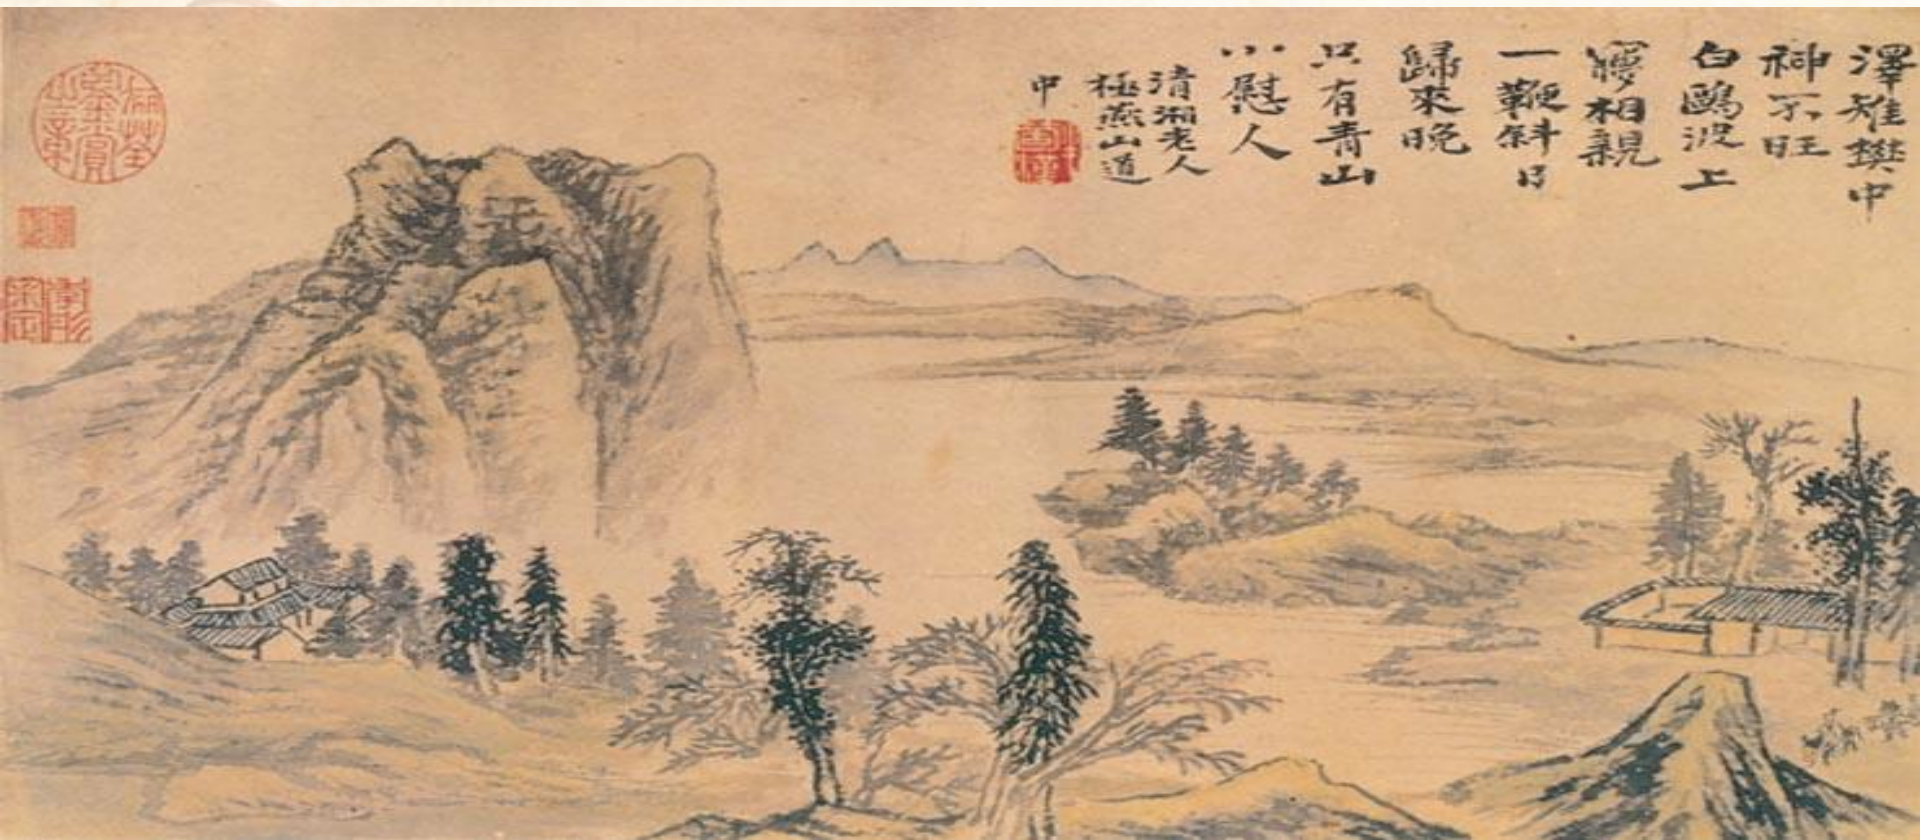 澤雉樊中
神不旺
白鷗波上
夢相親
一鞭斜日
歸來晚
只有青山
小慰人
清湘老人
極燕山道
中